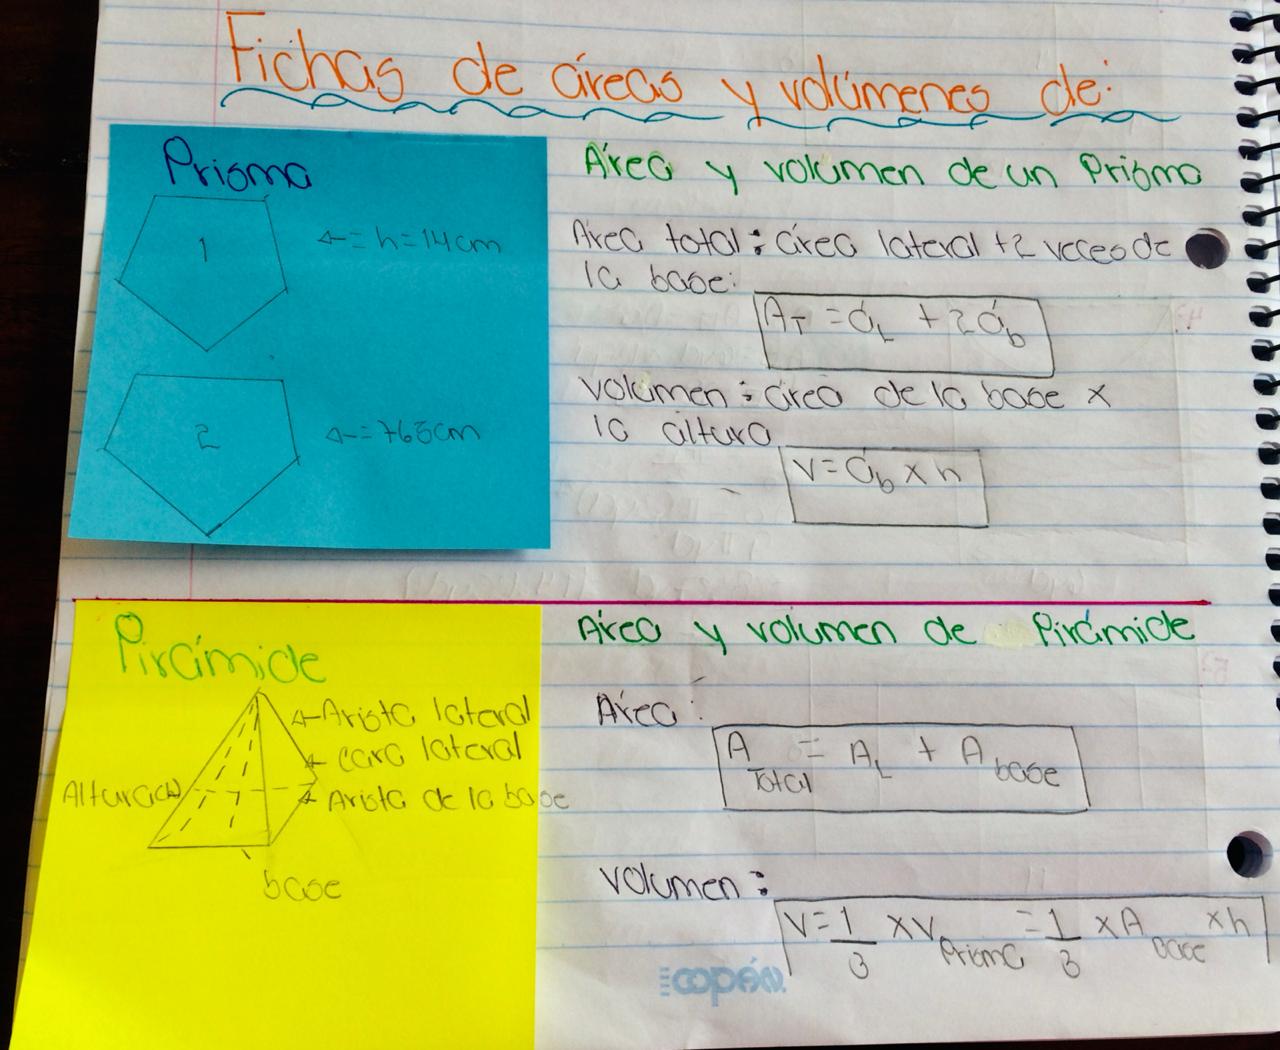 Fichas de áreas y volúmenes de:
Prisma
1
h=14cm
2
=765cm
Área y volumen de un Prisma
Área total: área lateral +2 veces de
la base:
A_T = á_L + 2á_b
volumen: área de la base x
la altura
V= á_b x h
Pirámide
Arista lateral
cara lateral
Altura(h)
Arista de la base
base
Área y volumen de Pirámide
Área:
A_Total = A_L + A_base
volumen:
V= 1/3 x V_Prisma = 1/3 x A_base x h
copán